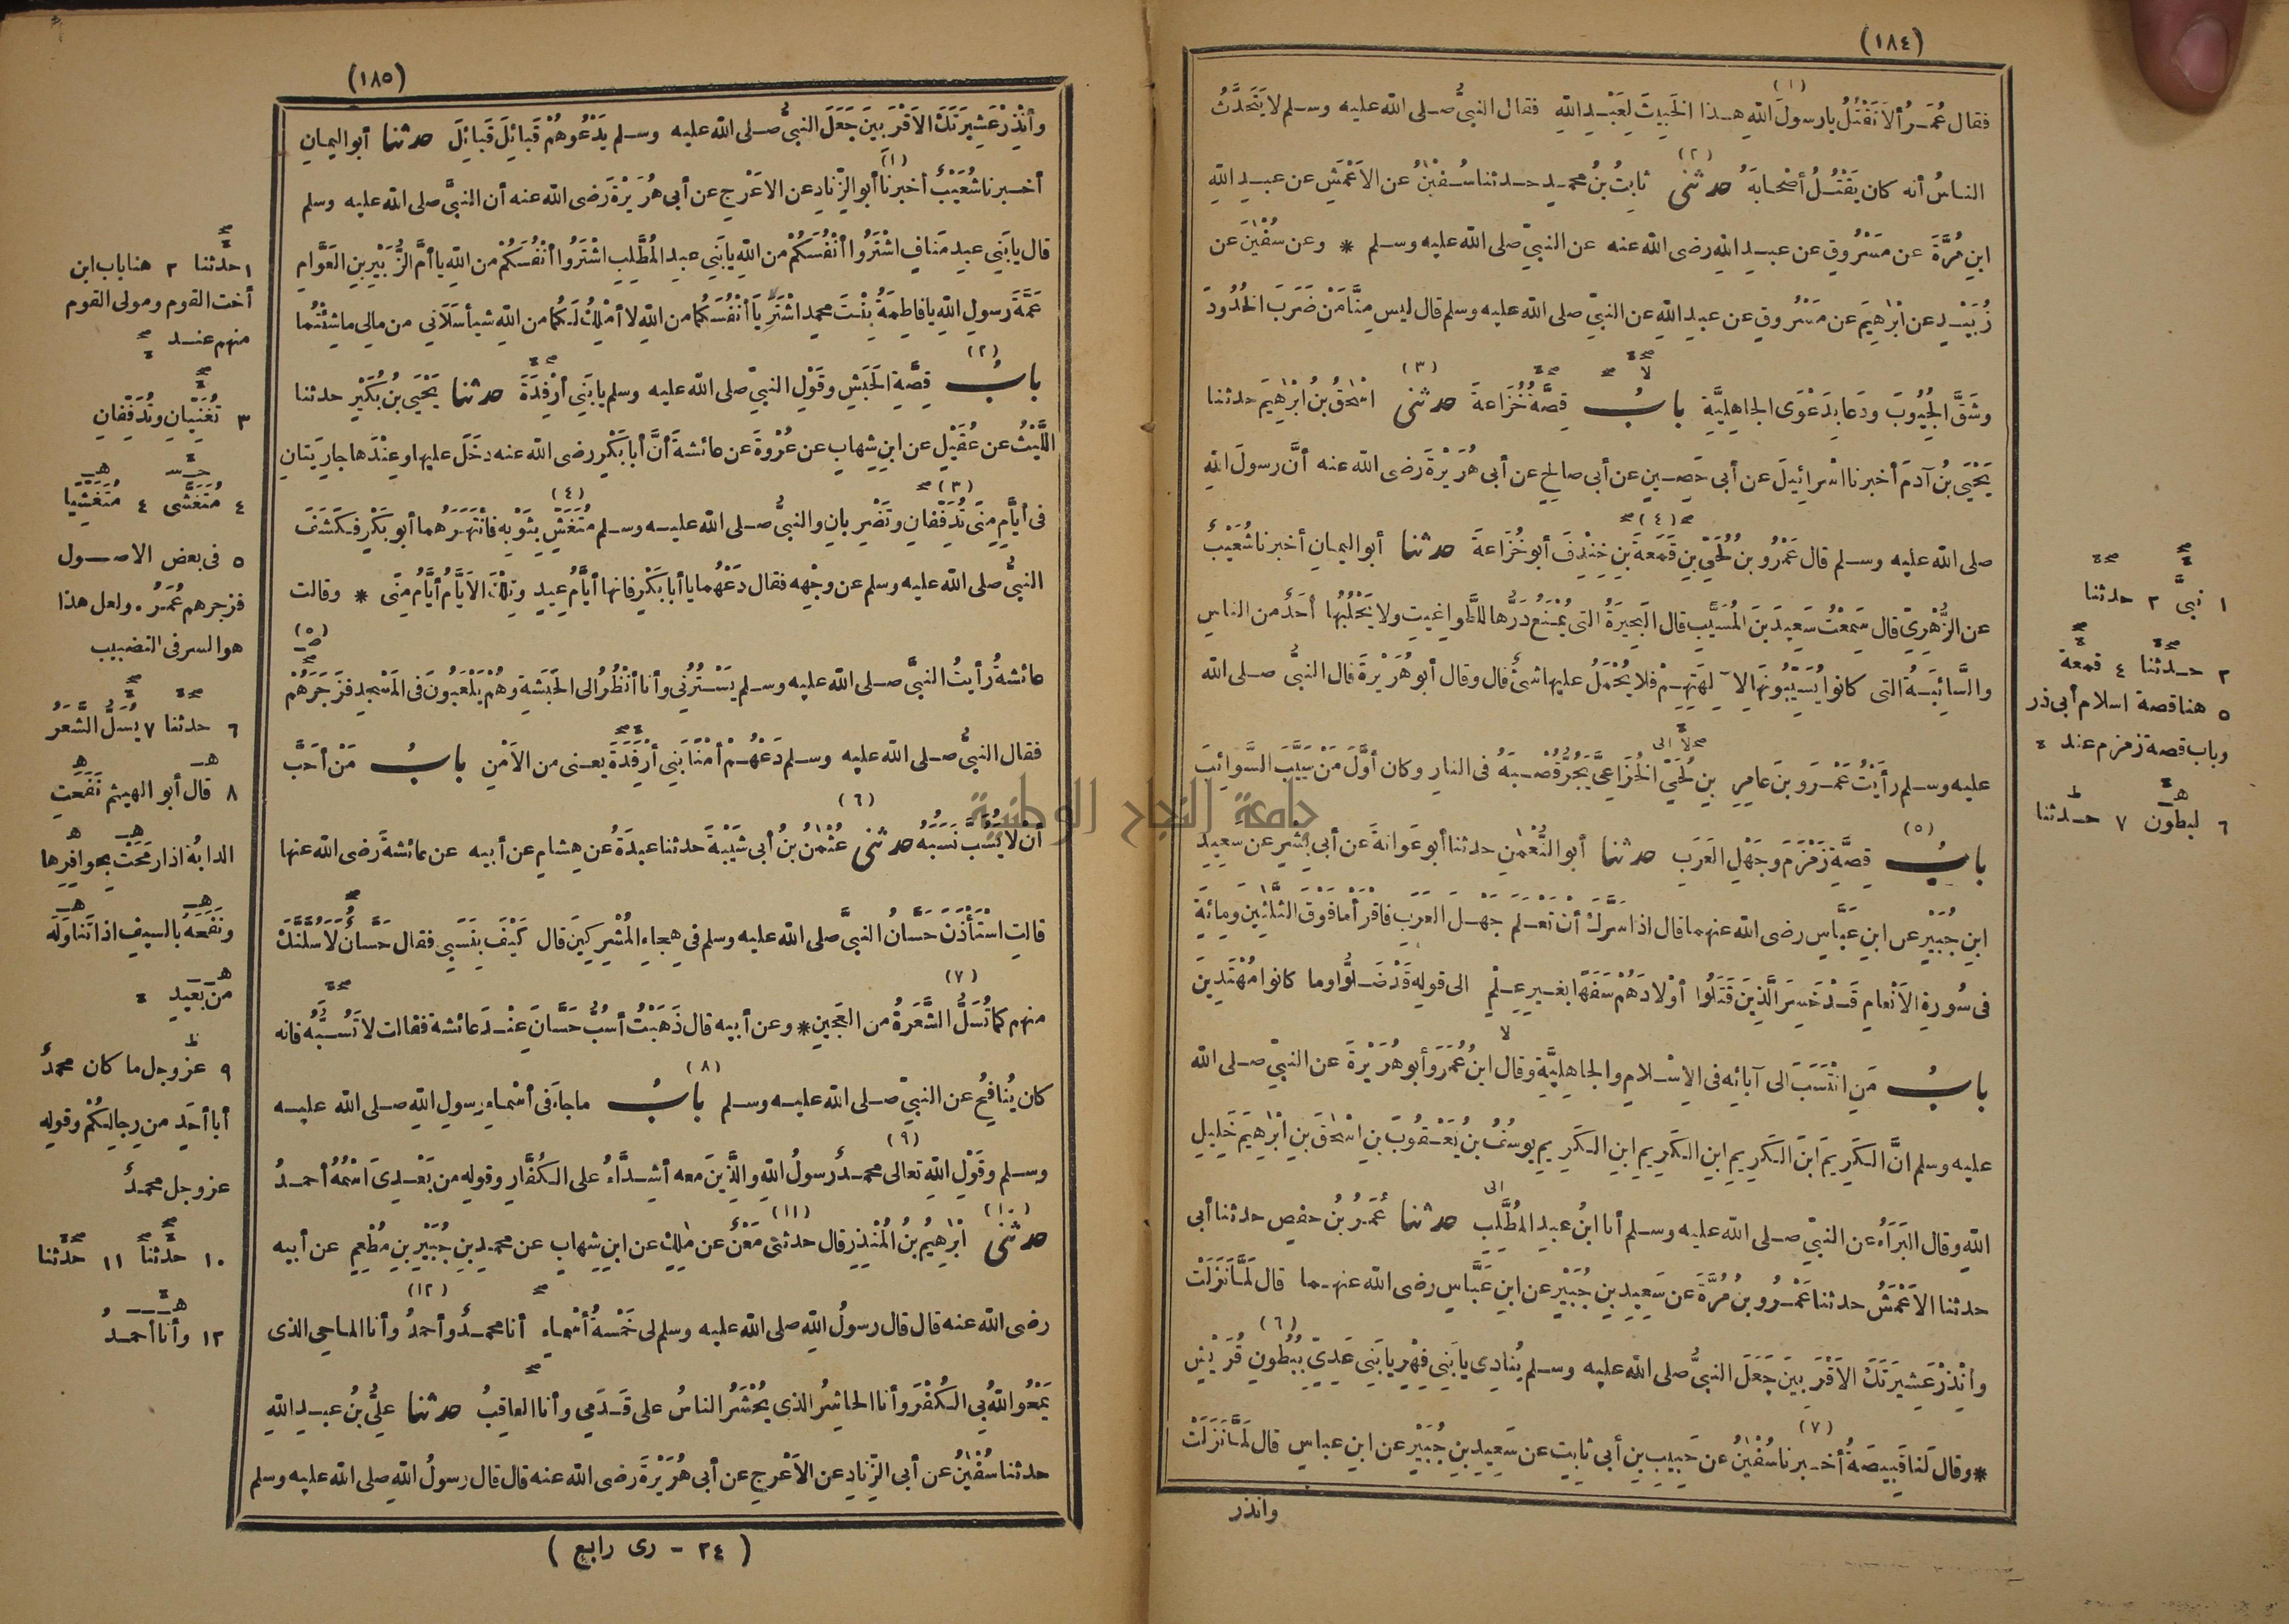 (١٨٤)
فقال عُمَرُ ألاَ نَقْتُلُ يا رسولَ اللهِ هذا الخَبِيثَ لِعَبْدِ اللهِ فقال النبيُّ صلى الله عليه وسلم لا يَتَحَدَّثُ
الناسُ أنه كان يَقْتُلُ أصْحابَهُ حدثنى ثابِتُ بنُ محمد حدثنا سُفْيٰنُ عن الاَعْمَشِ عن عبدِ اللهِ
ابنِ مُرَّةَ عن مَسْرُوقٍ عن عبدِ اللهِ رضى الله عنه عن النبيّ صلى الله عليه وسلم * وعن سفْيٰنَ عن
زُبَيْدٍ عن ابْرٰهِيمَ عن مَسْرُوقٍ عن عبد الله عن النبيّ صلى الله عليه وسلم قال ليس مِنَّا مَنْ ضَرَبَ الخُدُودَ
وشَقَّ الجُيُوبَ ودَعا بِدَعْوَى الجاهِليَّةِ بابُ قِصَّةُ خُزَاعَةَ حدثنى اسْحٰقُ بنُ ابْرٰهِيمَ حدثنا
يَحْيَى بنُ آدمَ أخبرنا اسْرائِيلَ عن أبى حَصِينٍ عن أبى صالِحٍ عن أبى هُرَيْرَةَ رضى الله عنه أنَّ رسولَ اللهِ
صلى الله عليه وسلم قال عَمْرُو بنُ لُحَيِّ بنِ قَمَعَةَ بنِ خِنْدِفَ أبو خُزَاعةَ حدثنا أبو اليمانِ أخبرنا شُعَيْبٌ
عن الزُّهْرِيّ قال سَمِعْتُ سَعِيدَ بنَ المُسَيَّبِ قال البَحِيرَةُ التى يُمْنَعُ دَرُّها للطَّواغيتِ ولا يَحْلُبُها أحَدٌ من الناسِ
والسَّائِبَةُ التى كانوا يُسَيِّبُونَها لآلِهَتِهِمْ فلا يُحْمَلُ عليها شئٌ قال وقال أبو هُرَيْرةَ قال النبيُّ صلى الله
عليه وسلم رأيْتُ عَمْرَو بنَ عامِرِ بنِ لُحَيٍّ الخُزَاعِيَّ يَجُرُّ قُصْبَهُ فى النارِ وكان أوَّلَ مَنْ سَيَّبَ السَّوائِبَ
بابُ قِصَّةِ زَمْزَمَ وجَهْلِ العَرَبِ حدثنا أبو النُّعْمٰنِ حدثنا أبو عَوانةَ عن أبى بِشْرٍ عن سعِيدِ
ابنِ جُبَيْرٍ عن ابنِ عَبَّاسٍ رضى الله عنهما قال اذا سَرَّكَ أنْ تَعْلَمَ جَهْلَ العَرَبِ فاقْرَأْ ما فَوْقَ الثَّلٰثِينَ ومِائةٍ
فى سُورةِ الاَنْعامِ قَدْ خَسِرَ الَّذِينَ قَتَلُوا أوْلادَهُمْ سَفَهًا بغيرِ عِلْمٍ الى قولِهِ قَدْ ضَلُّوا وما كانوا مُهْتَدِينَ
بابُ مَنِ انْتَسَبَ الى آبائه فى الاِسْلامِ والجاهِليَّةِ وقال ابنُ عُمَرَ وأبو هُرَيْرةَ عن النبيّ صلى الله
عليه وسلم انَّ الكَرِيمَ ابنَ الكَرِيمِ ابنِ الكَرِيمِ ابنِ الكَرِيمِ يوسُفُ بنُ يَعْقُوبَ بنِ اسْحٰقَ بنِ ابْرٰهِيمَ خَلِيلِ
اللهِ وقال البَرَاءُ عن النبيّ صلى الله عليه وسلم أنا ابنُ عبدِ المُطَّلِبِ حدثنا عُمَرُ بنُ حفصٍ حدثنا أبى
حدثنا الاَعْمَشُ حدثنا عَمْرُو بنُ مُرَّةَ عن سَعِيدِ بنِ جُبَيْرٍ عن ابنِ عَبَّاسٍ رضى الله عنهما قال لَمَّا نَزَلَتْ
وأنْذِرْ عَشِيرَتَكَ الاَقْرَبِينَ جَعَلَ النبيُّ صلى الله عليه وسلم يُنادِى يا بَنِى فِهْرٍ يا بَنِى عَدِيٍّ بِبُطُونِ قُرَيْشٍ
* وقال لَنا قَبِيصَةُ أخبرنا سُفْيٰنُ عن حَبِيبِ بنِ أبى ثابِتٍ عن سَعِيدِ بنِ جُبَيْرٍ عن ابنِ عباسٍ قال لَمَّا نَزَلَتْ
وانذر
١ نبيَّ ٢ حدثنا
٣ حدثنا ٤ قمعة
٥ هنا قصة اسلام أبى ذر
وباب قصة زمزم عند
٦ لبطون ٧ حدثنا
(١٨٥)
وأنْذِرْ عَشِيرَتَكَ الاَقْرَبِينَ جَعَلَ النبيُّ صلى الله عليه وسلم يَدْعُوهُمْ قَبائِلَ قَبائِلَ حدثنا أبو اليمانِ
أخبرنا شُعَيْبٌ أخبرنا أبو الزِّنادِ عن الاَعْرجِ عن أبى هُرَيْرَةَ رضى الله عنه أن النبيَّ صلى الله عليه وسلم
قال يا بَنِى عبدِ مَنافٍ اشْتَرُوا أنْفُسَكُمْ من اللهِ يا بَنِى عبدِ المُطَّلِبِ اشْتَرُوا أنْفُسَكُمْ من اللهِ يا أمَّ الزُّبَيْرِ بنِ العَوَّامِ
عَمَّةَ رسولِ اللهِ يا فاطِمَةُ بِنْتَ محمد اشْتَرِيَا أنْفُسَكُما من الله لا أمْلِكُ لَكُما من اللهِ شيأ سَلانِى من مالى ما شِئْتُما
بابُ قِصَّةِ الحَبَشِ وقَوْلِ النبيّ صلى الله عليه وسلم يا بَنِى أرْفِدَةَ حدثنا يَحْيَى بنُ بُكَيْرٍ حدثنا
اللَّيْثُ عن عُقَيْلٍ عن ابنِ شِهابٍ عن عُرْوةَ عن عائشةَ أنَّ أبا بَكْرٍ رضى الله عنه دخَلَ عليها وعِنْدَها جارِيَتانِ
فى أيَّامِ مِنًى تُدَفِّفانِ وتَضْرِبانِ والنبيُّ صلى الله عليه وسلم مُتَغَشٍّ بِثَوْبِه فانْتَهَرَهُما أبو بَكْرٍ فكَشَفَ
النبيُّ صلى الله عليه وسلم عن وجْهِه فقال دَعْهُما يا أبا بَكْرٍ فانها أيَّامُ عِيدٍ وتِلْكَ الاَيَّامُ أيَّامُ مِنًى * وقالت
عائشةُ رأيتُ النبيَّ صلى الله عليه وسلم يَسْتُرُنِى وأنا أنْظُرُ الى الحَبَشةِ وهُمْ يَلْعَبُونَ فى المَسْجِدِ فزَجَرَهُمْ
فقال النبيُّ صلى الله عليه وسلم دَعْهُمْ أمْنًا بَنِى أرْفَدَةَ يعنى من الاَمْنِ بابُ مَنْ أحَبَّ
أنْ لا يُسَبَّ نَسَبُهُ حدثنى عُثْمٰنُ بنُ أبى شَيْبةَ حدثنا عبدَةُ عن هِشامٍ عن أبيه عن عائشةَ رضى الله عنها
قالتِ اسْتَأْذَنَ حَسَّانُ النبيَّ صلى الله عليه وسلم فى هِجاءِ المُشْرِكِينَ قال كَيْفَ بِنَسَبِى فقال حَسَّانُ لَاَسُلَّنَّكَ
منهم كما تُسَلُّ الشَّعَرَةُ من العَجِينِ * وعن أبيه قال ذَهَبْتُ أسُبُّ حَسَّانَ عِنْدَ عائشةَ فقالت لا تَسُبُّهُ فانه
كان يُنافِحُ عن النبيّ صلى الله عليه وسلم بابُ ما جاءَ فى أسْماءِ رسولِ اللهِ صلى الله عليه
وسلم وقَوْلِ اللهِ تعالى محمدٌ رسولُ اللهِ والَّذِينَ معه أشِدَّاءُ على الكُفَّارِ وقوله من بَعْدِىَ اسْمُهُ أحمدُ
حدثنى ابْرٰهِيمُ بنُ المُنْذِرِ قال حدثنى مَعْنٌ عن مٰلِكٍ عن ابنِ شِهابٍ عن محمدِ بنِ جُبَيْرِ بنِ مُطْعِمٍ عن أبيه
رضى الله عنه قال قال رسولُ اللهِ صلى الله عليه وسلم لى خَمْسةُ أسْماءٍ أنا محمدٌ وأحمدُ وأنا الماحى الذى
يَمْحُو اللهُ بِى الكُفْرَ وأنا الحاشِرُ الذى يُحْشَرُ الناسُ على قَدَمِى وأنا العاقِبُ حدثنا علىُّ بنُ عبدِ اللهِ
حدثنا سُفْيٰنُ عن أبى الزِّنادِ عن الاَعْرجِ عن أبى هُرَيْرَةَ رضى الله عنه قال قال رسولُ اللهِ صلى الله عليه وسلم
(٢٤ - رى رابع)
١ حدثنا ٢ هنا باب ابن
أخت القوم ومولى القوم
منهم عند
٣ تُغَنِّيانِ وتُدَفِّفانِ
٤ مُتَغَشًّى ٤ مُتَغَشِّيًا
٥ فى بعض الاصول
فزجرهم عُمَرُ . ولعل هذا
هو السر فى التضبيب
٦ حدثنا ٧ يُسَلُّ الشَّعَرُ
٨ قال أبو الهيثم نَفَحَتِ
الدابةُ اذا رَمَحَتْ بحوافِرِها
ونَفَحَهُ بالسيفِ اذا تَناوَلَهُ
من بَعِيدٍ
٩ عز وجل ما كان محمدٌ
أبا أحَدٍ من رِجالِكُمْ وقوله
عز وجل محمدٌ
١٠ حدثنا ١١ حدثنا
١٢ وأنا أحمدُ
جامعة النجاح الوطنية